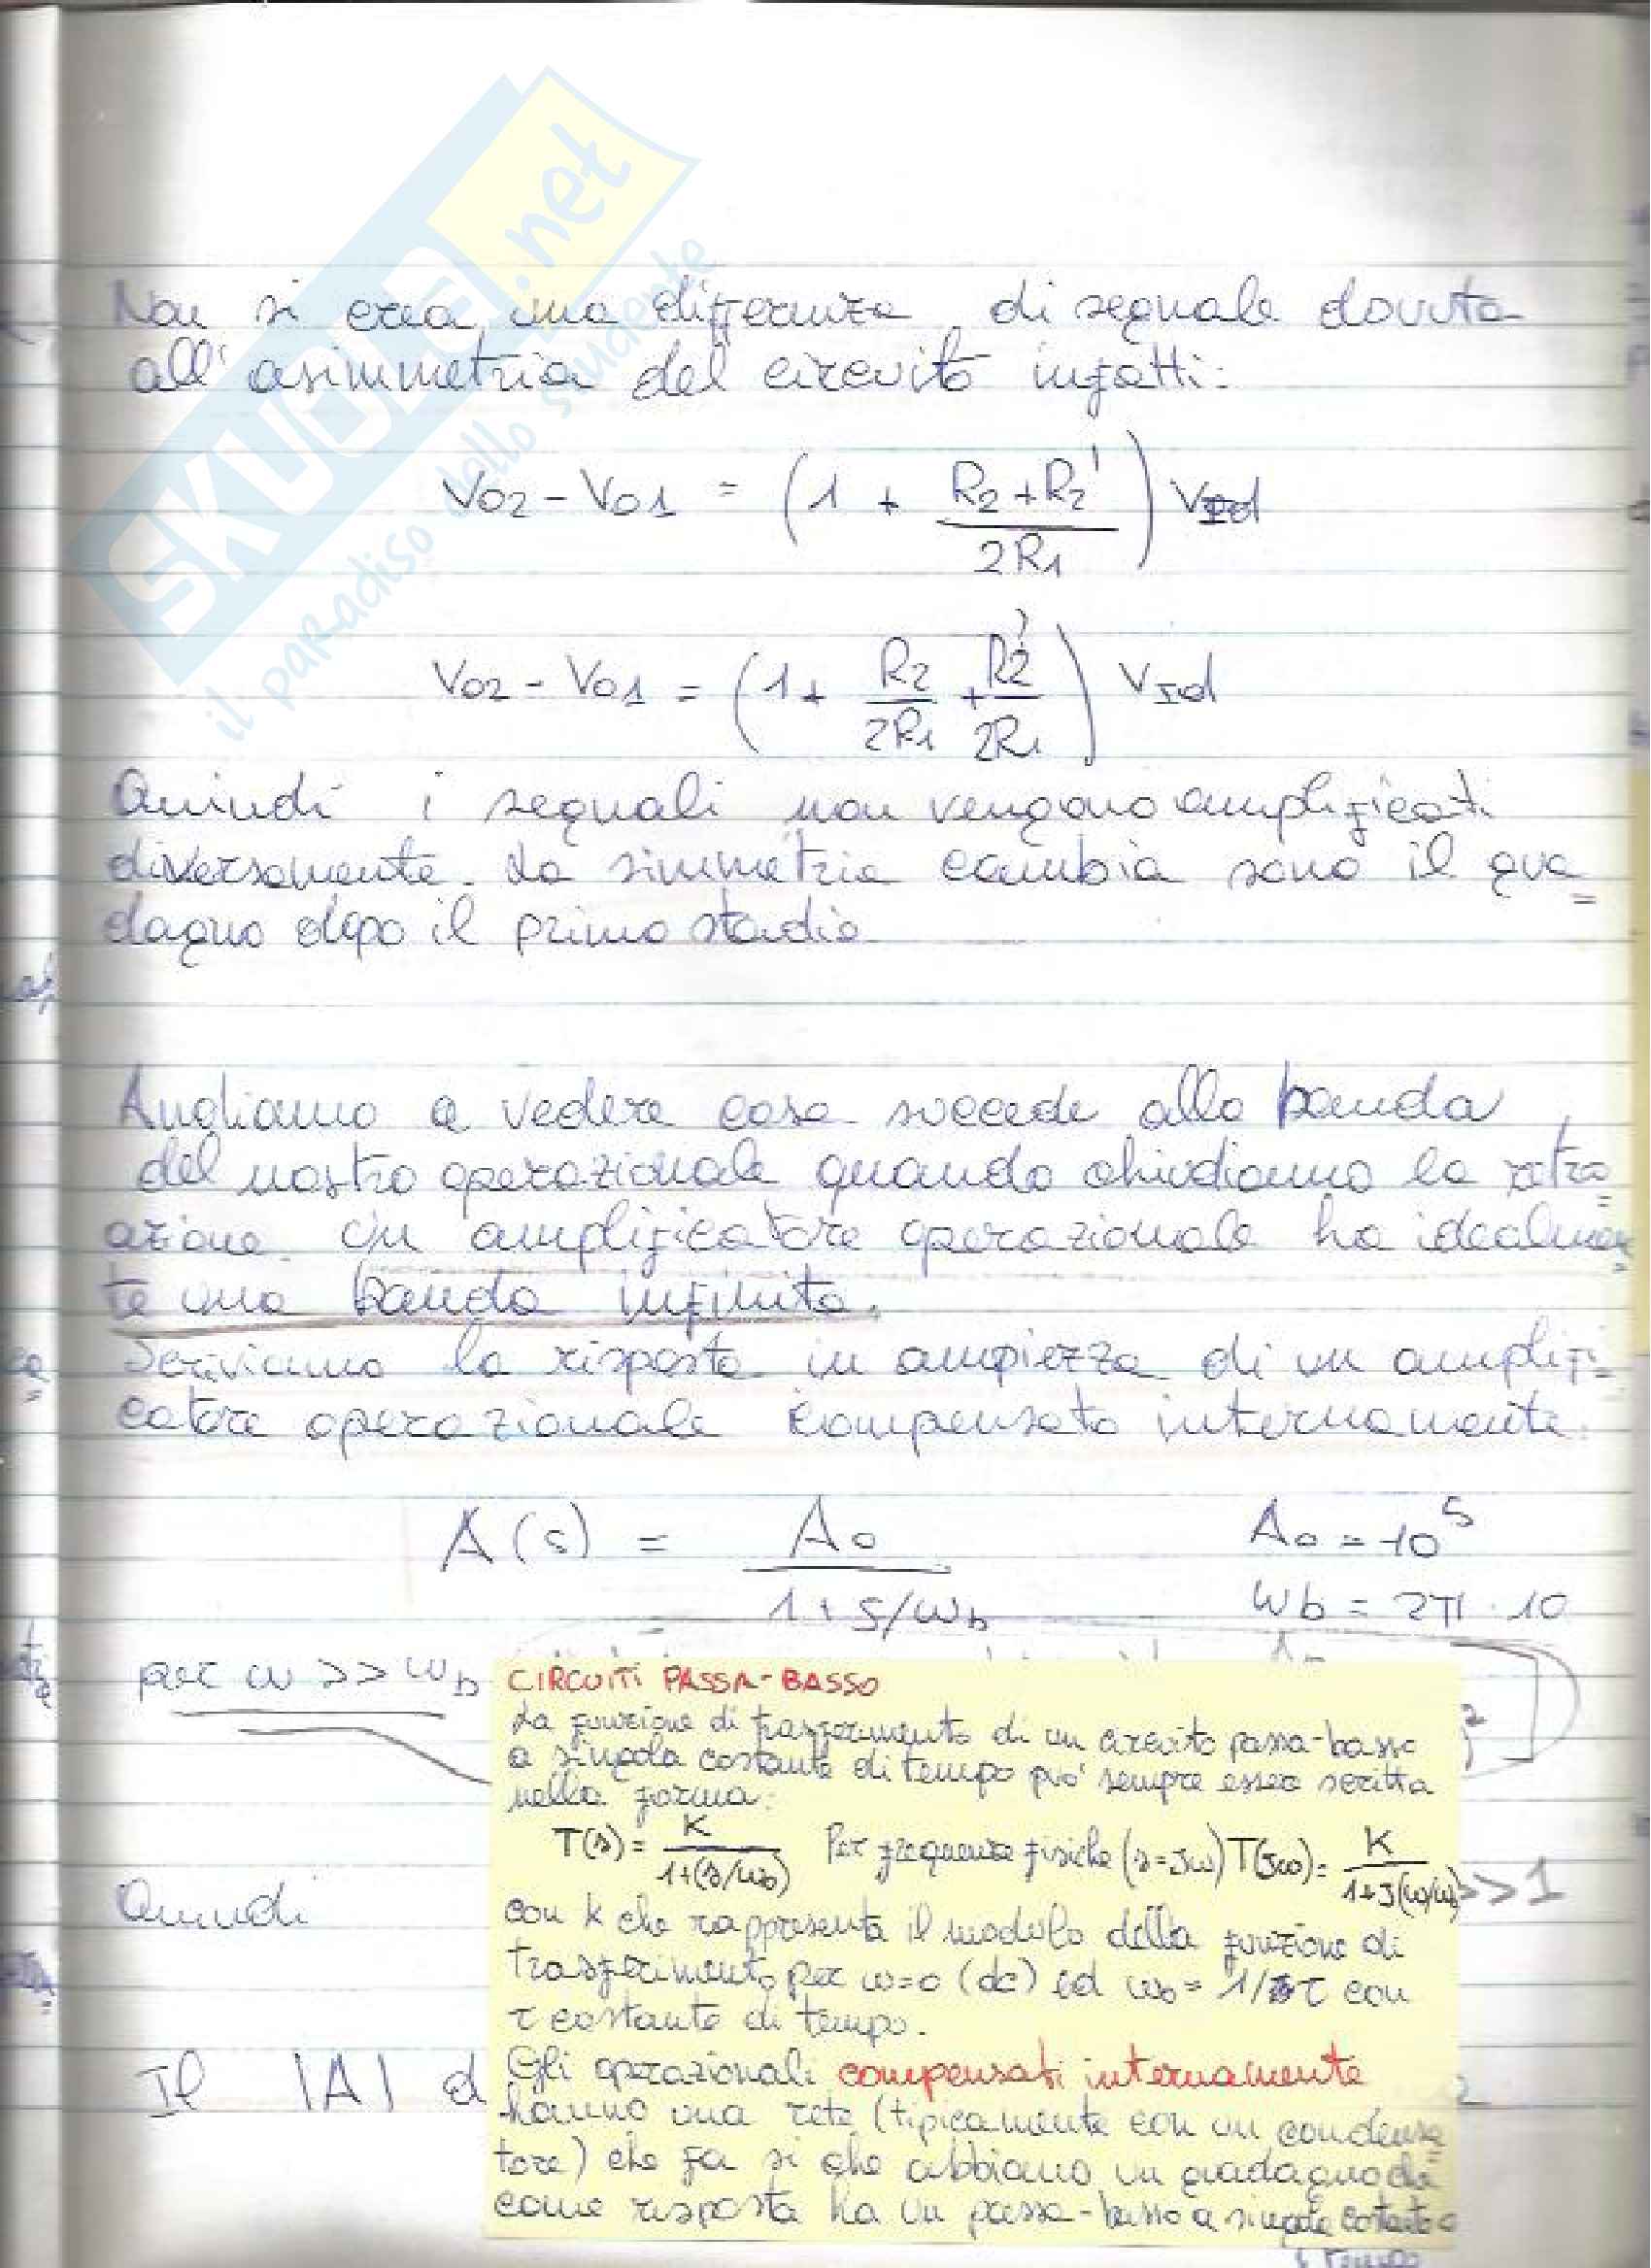 SKUOLA.net
il paradiso dello studente
Non si crea una differenza di segnale dovuta
all'asimmetria del circuito infatti:
Vo2 - Vo1 = (1 + (R2 + R2')/2R1) VId
Vo2 - Vo1 = (1 + R2/2R1 + R2'/2R1) VId
Quindi i segnali non vengono amplificati
diversamente. La simmetria cambia sono il gua=
dagno dopo il primo stadio
Andiamo a vedere cosa succede alla banda
del nostro operazionale quando chiudiamo la retro=
azione. Un amplificatore operazionale ha idealmen=
te una banda infinita.
Scriviamo la risposta in ampiezza di un amplifi=
catore operazionale compensato internamente.
A(s) = A0/(1 + s/ωb) A0 = 10^5
ωb = 2π · 10
per ω >> ωb
Quindi >> 1
Il |A| d
CIRCUITI PASSA-BASSO
La funzione di trasferimento di un circuito passa-basso
a singola costante di tempo può sempre esser scritta
nella forma:
T(s) = K/(1+(s/ω0)) Per frequenze fisiche (s=jω) T(jω) = K/(1+j(ω/ω0))
con k che rappresenta il modulo della funzione di
trasferimento per ω=0 (dc) ed ω0 = 1/τ con
τ costante di tempo.
Gli operazionali compensati internamente
hanno una rete (tipicamente con un condensa=
tore) che fa si che abbiamo un guadagno che
come risposta ha un passa-basso a singola costante
di tempo